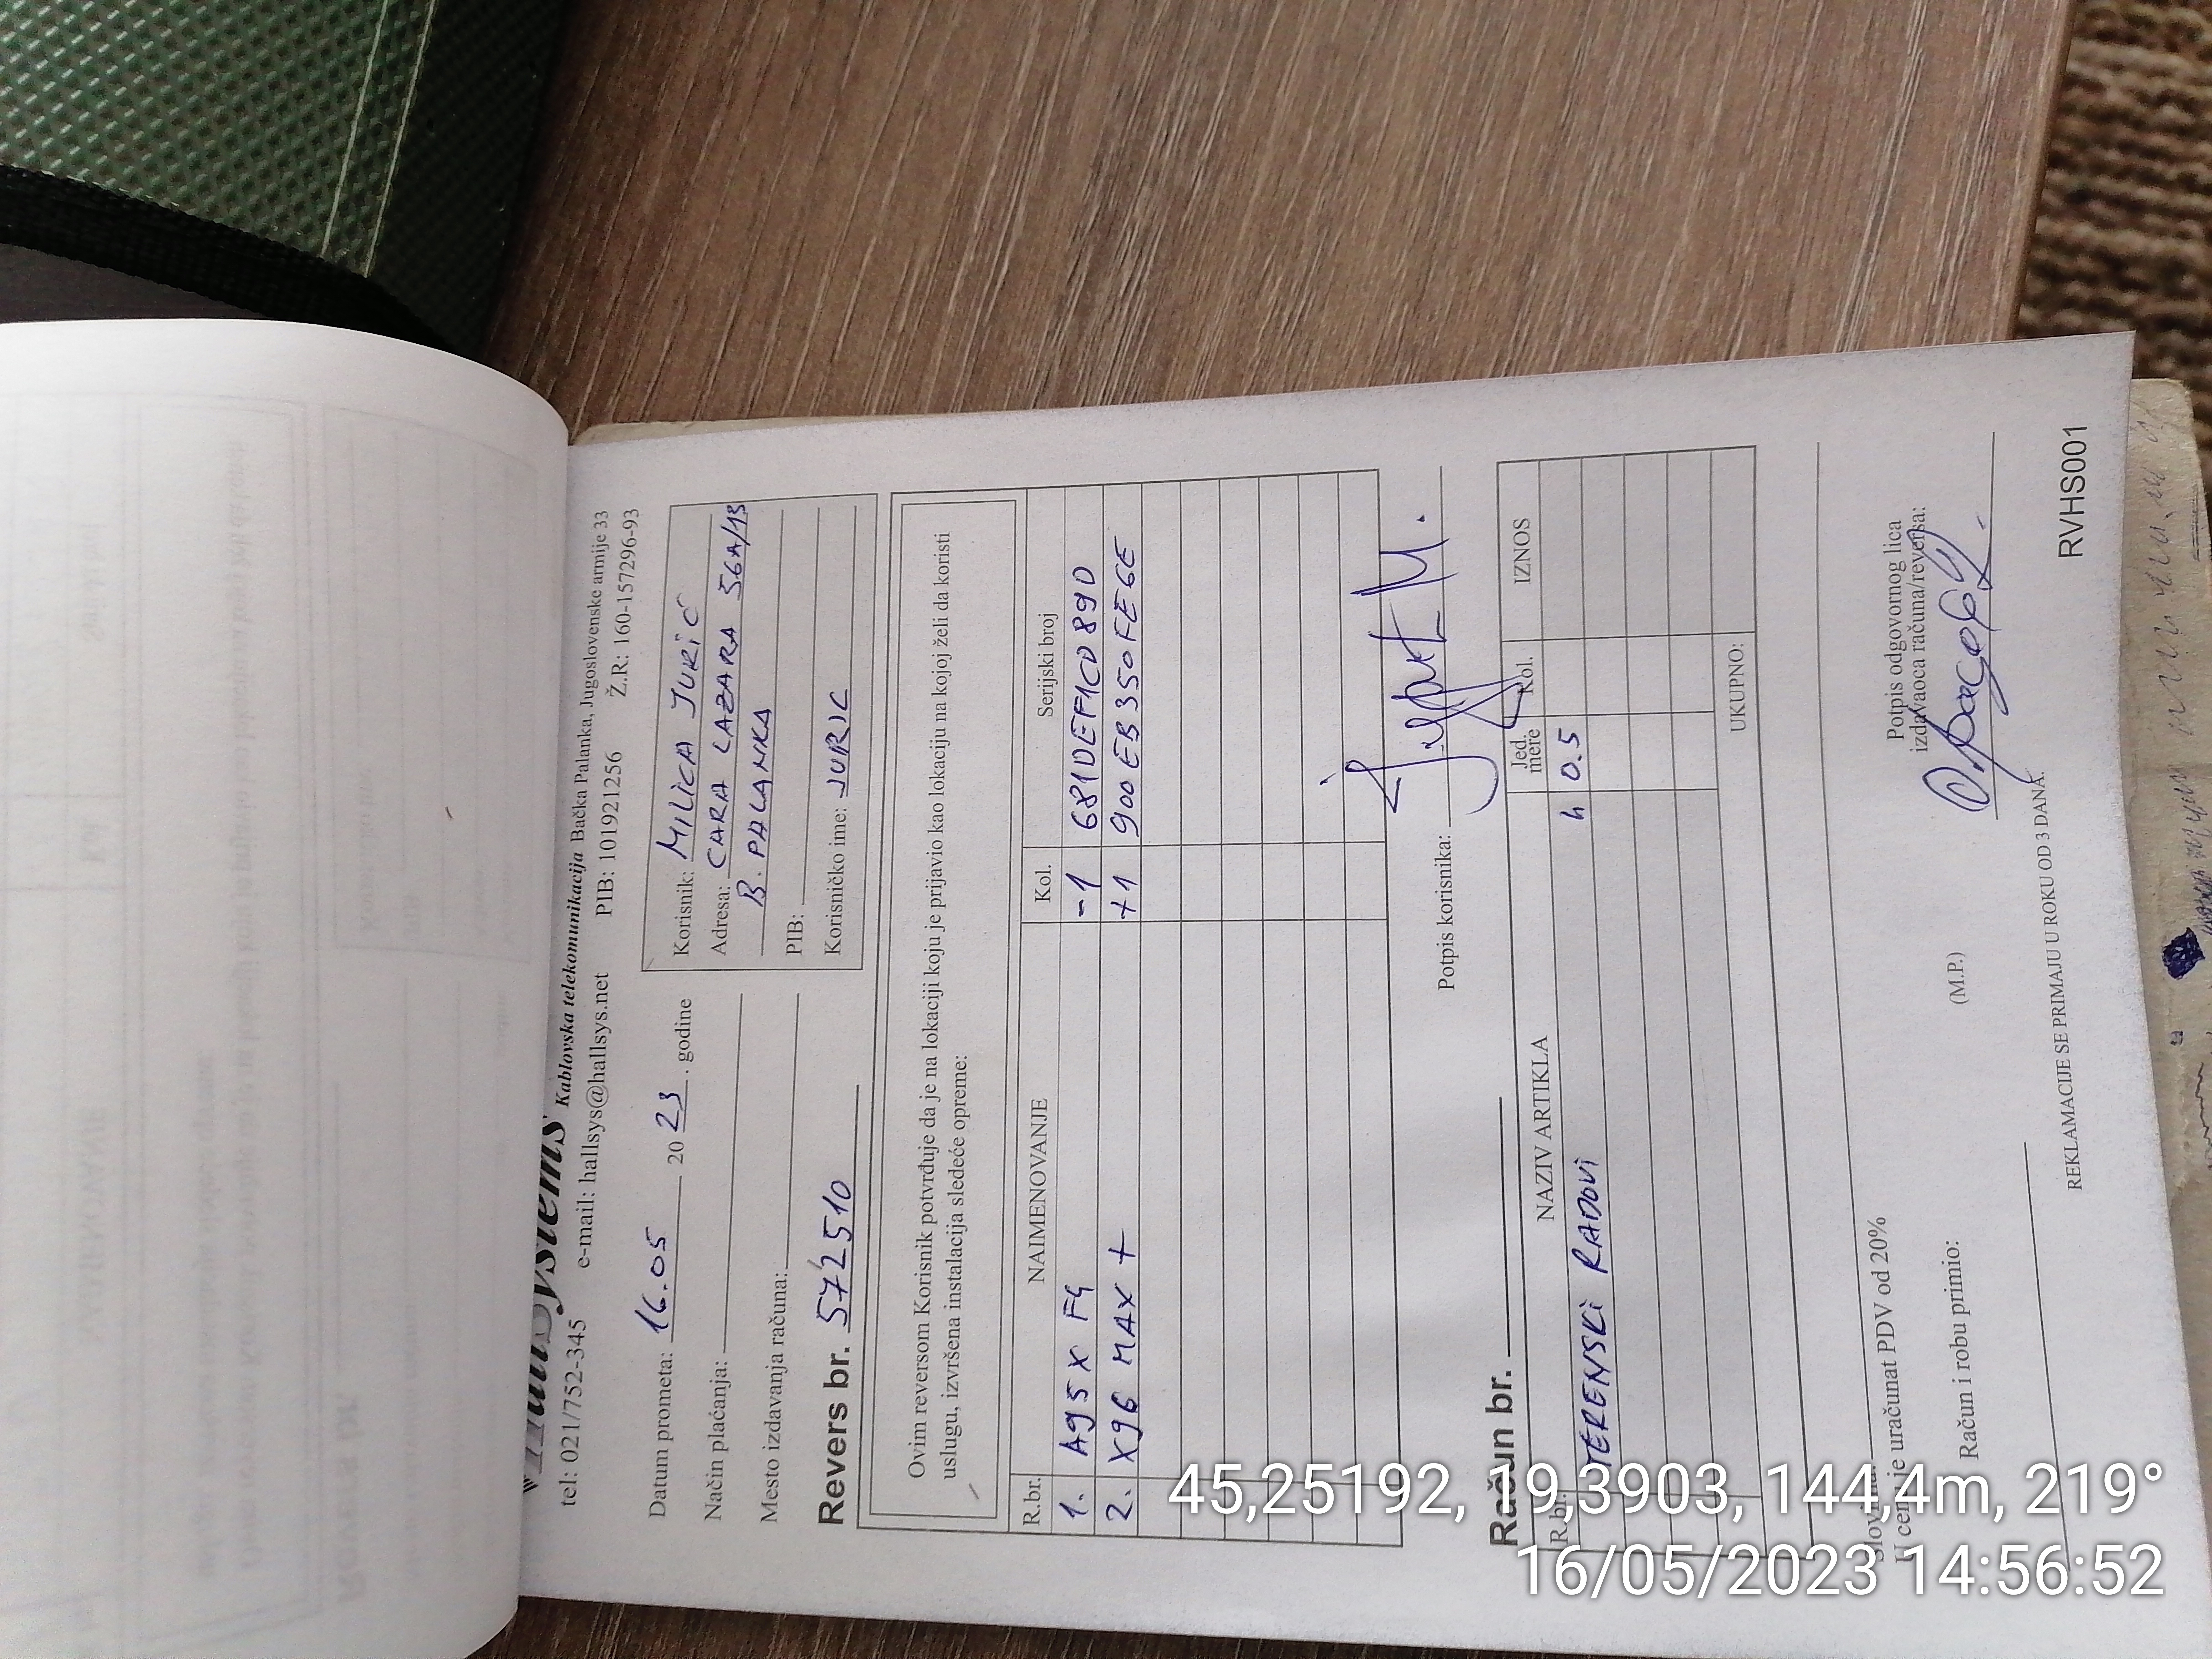 HallSystems Kablovska telekomunikacija Bačka Palanka, Jugoslovenske armije 33
tel: 021/752-345 e-mail: hallsys@hallsys.net PIB: 101921256 Ž.R: 160-157296-93
Datum prometa: 16.05 20 23. godine
Način plaćanja:
Mesto izdavanja računa:
Korisnik: MILICA JURIĆ
Adresa: CARA LAZARA 56A/13
B. PALANKA
PIB:
Korisničko ime: JURIC
Revers br. 5725510
Ovim reversom Korisnik potvrđuje da je na lokaciji koju je prijavio kao lokaciju na kojoj želi da koristi
uslugu, izvršena instalacija sledeće opreme:
R.br. NAIMENOVANJE Kol. Serijski broj
1. A95X F4 -1 681DEF1CD89D
2. X96 MAX + +1 900EB350FE6E
Potpis korisnika:
Račun br.
R.br. NAZIV ARTIKLA Jed. mere Kol. IZNOS
TERENSKI RADOVI h 0.5
UKUPNO:
Slovima:
U cenu je uračunat PDV od 20%
Račun i robu primio:
(M.P.)
Potpis odgovornog lica
izdavaoca računa/reversa:
REKLAMACIJE SE PRIMAJU U ROKU OD 3 DANA.
RVHS001
45,25192, 19,3903, 144,4m, 219°
16/05/2023 14:56:52